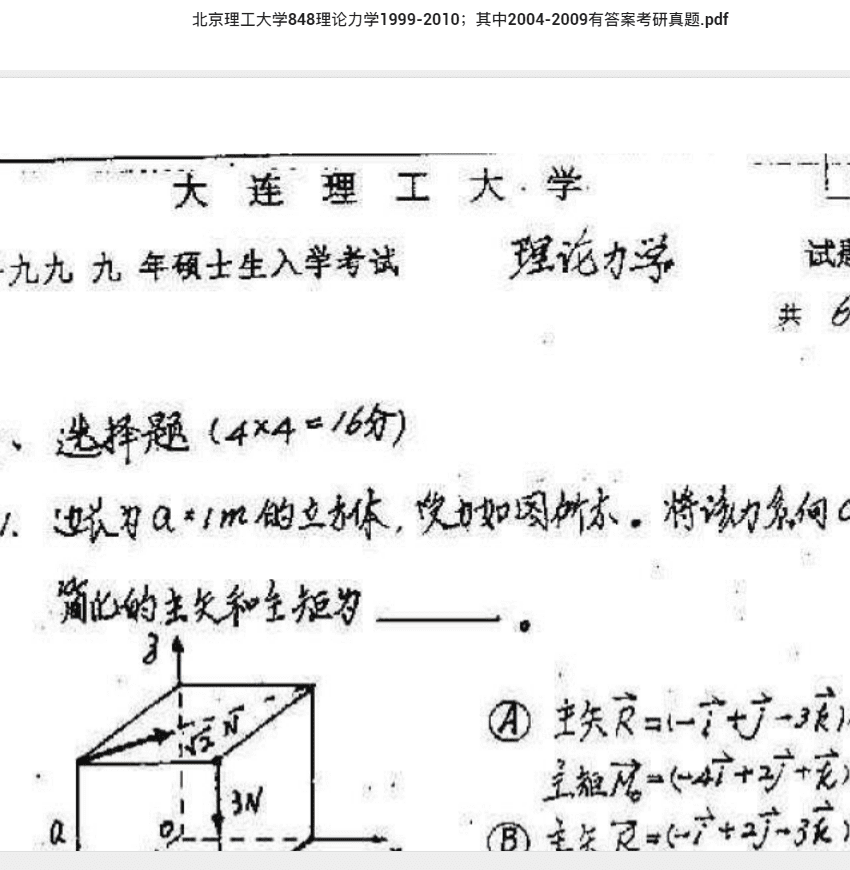 北京理工大学848理论力学1999-2010；其中2004-2009有答案考研真题.pdf
大连理工大学
九九九年硕士生入学考试 理论力学 试题
共 6
、选择题 (4×4=16分)
1. 边长为a=1m的立方体，受力如图所示。将该力系向O
简化的主矢和主矩为 ______。
z
√2 N
3N
a
O
Ⓐ 主矢R⃗=(-i⃗+j⃗-3k⃗)
主矩M⃗₀=(-4i⃗+2j⃗+k⃗)
Ⓑ 主矢R⃗=(-i⃗+2j⃗-3k⃗)